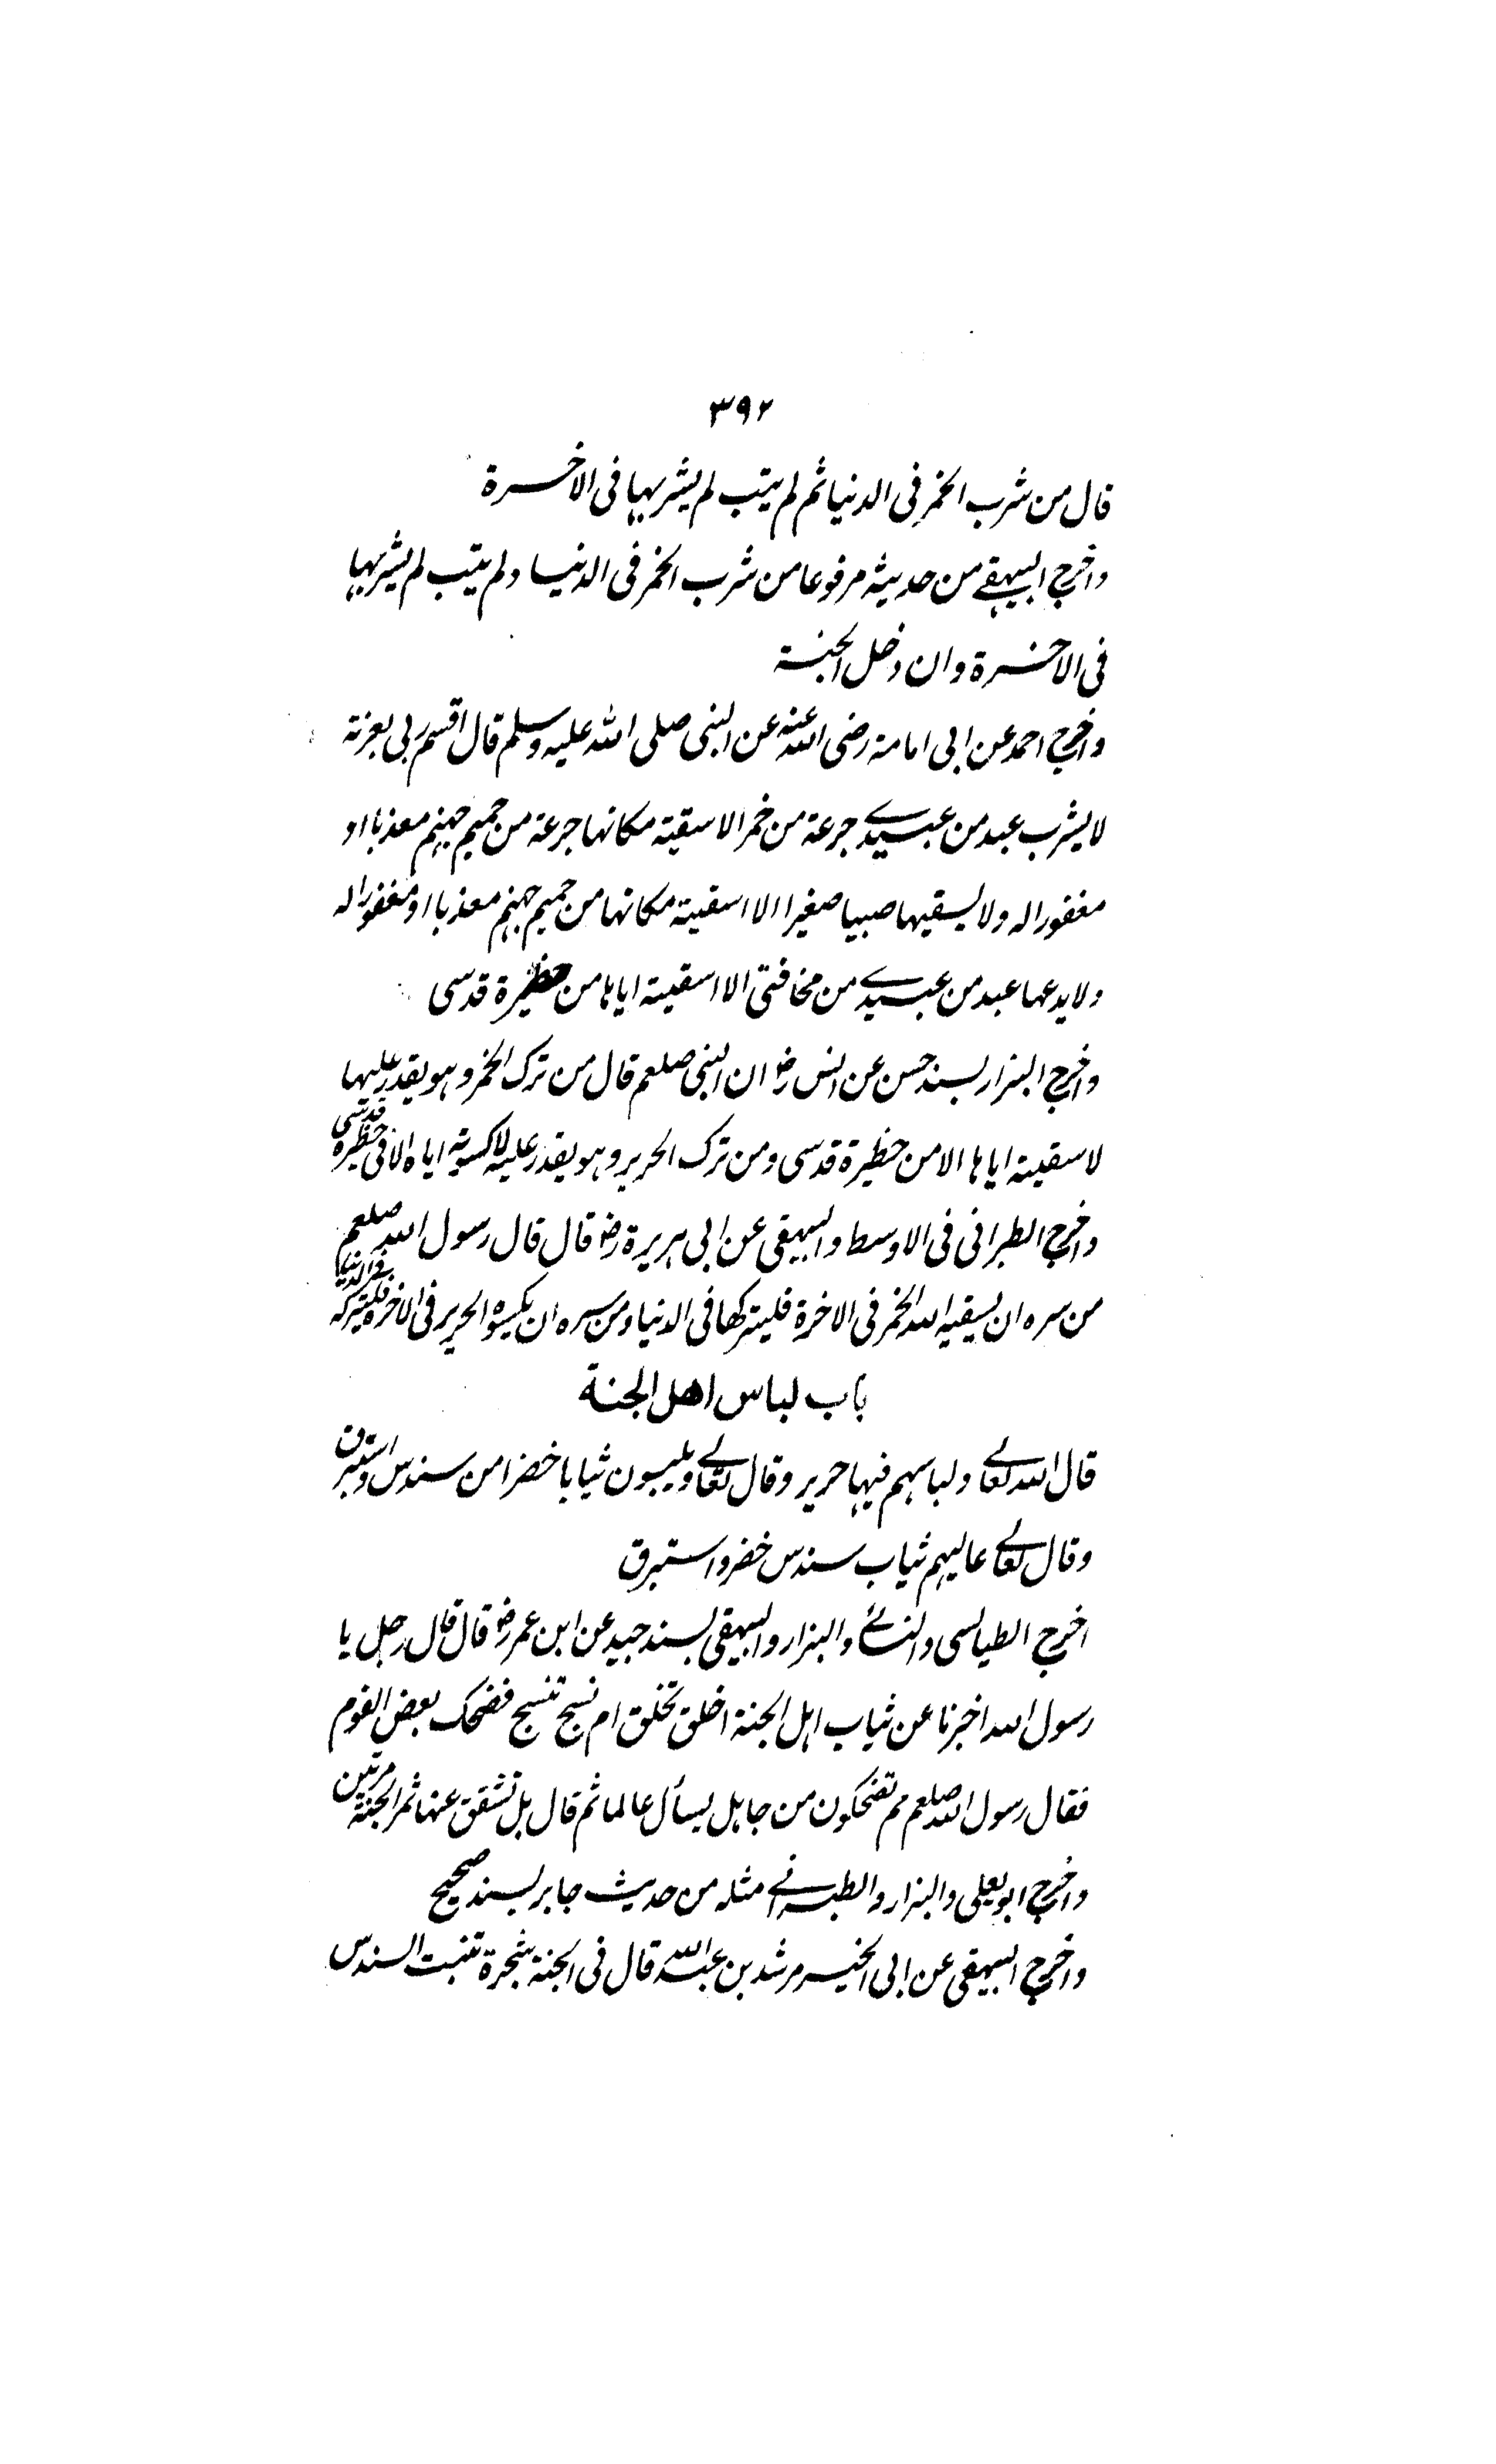 ۳۹۲
قال من شرب الخمر فی الدنیا ثم لم یتب لم یشربها فی الاخرة
واخرج البیهقے من حدیثه مرفوعا من شرب الخمر فی الدنیا ولم یتب لم یشربها
فی الاخرة وان دخل الجنة
واخرج احمد عن ابی امامة رضی الله عنه عن النبی صلی الله علیه وسلم قال اقسم ربی بعزته
لا یشرب عبد من عبیدے جرعة من خمر الا سقیته مکانها جرعة من حمیم جهنم معذبا او
مغفورا له ولا یسقیها صبیا صغیرا الا اسقیته مکانها من حمیم جهنم معذبا او مغفورا له
ولا یدعها عبد من عبیدے من مخافتی الا اسقیته ایاها من حظیرة قدسی
واخرج البزار بسند حسن عن انس رض ان النبی صلعم قال من ترک الخمر وهو یقدر علیها
لا سقینه ایاها الا من حظیرة قدسی ومن ترک الحریر وهو یقدر علیه لاکسوته ایاه الا فی حظیرة قدسی
واخرج الطبرانی فی الاوسط والبیهقی عن ابی هریرة رض قال قال رسول الله صلعم
من سره ان یسقیه الله الخمر فی الاخرة فلیترکها فی الدنیا ومن سره ان یکسوه الحریر فی الاخرة فلیترکه فی الدنیا
باب لباس اهل الجنة
قال الله تعالے ولباسهم فیها حریر وقال تعالے ویلبسون ثیابا خضرا من سندس واستبرق
وقال تعالے عالیهم ثیاب سندس خضر واستبرق
اخرج الطیالسی والنسائے والبزار والبیهقی بسند جید عن ابن عمر رض قال قال رجل یا
رسول الله اخبرنا عن ثیاب اهل الجنة اخلق تخلق ام نسج تنسج فضحک بعض القوم
فقال رسول الله صلعم مم تضحکون من جاهل یسأل عالما ثم قال بل تشقق عنها ثمر الجنة مرتین
واخرج ابو یعلی والبزار والطبرانے مثله من حدیث جابر بسند صحیح
واخرج البیهقی عن ابی الخیر مرثد بن عبد الله قال فی الجنة شجرة تنبت السندس